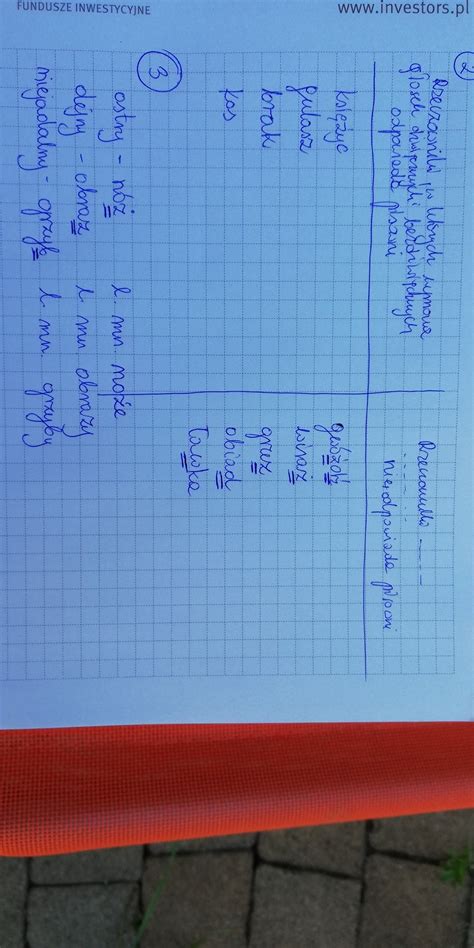 FUNDUSZE INWESTYCYJNE
www.investors.pl
2
Rzeczowniki, w których wymowa
głosek dźwięcznych i bezdźwięcznych
odpowiada pisowni
Rzeczowniki -----
nieodpowiada pisowni
księżyc
gulasz
brak
kos
gwóźdź
wiraż
gruz
obiad
ławka
3
ostry - nóż l. mn. noże
olejny - obraz l. mn obrazy
niejadalny - grzyb l. mn. grzyby